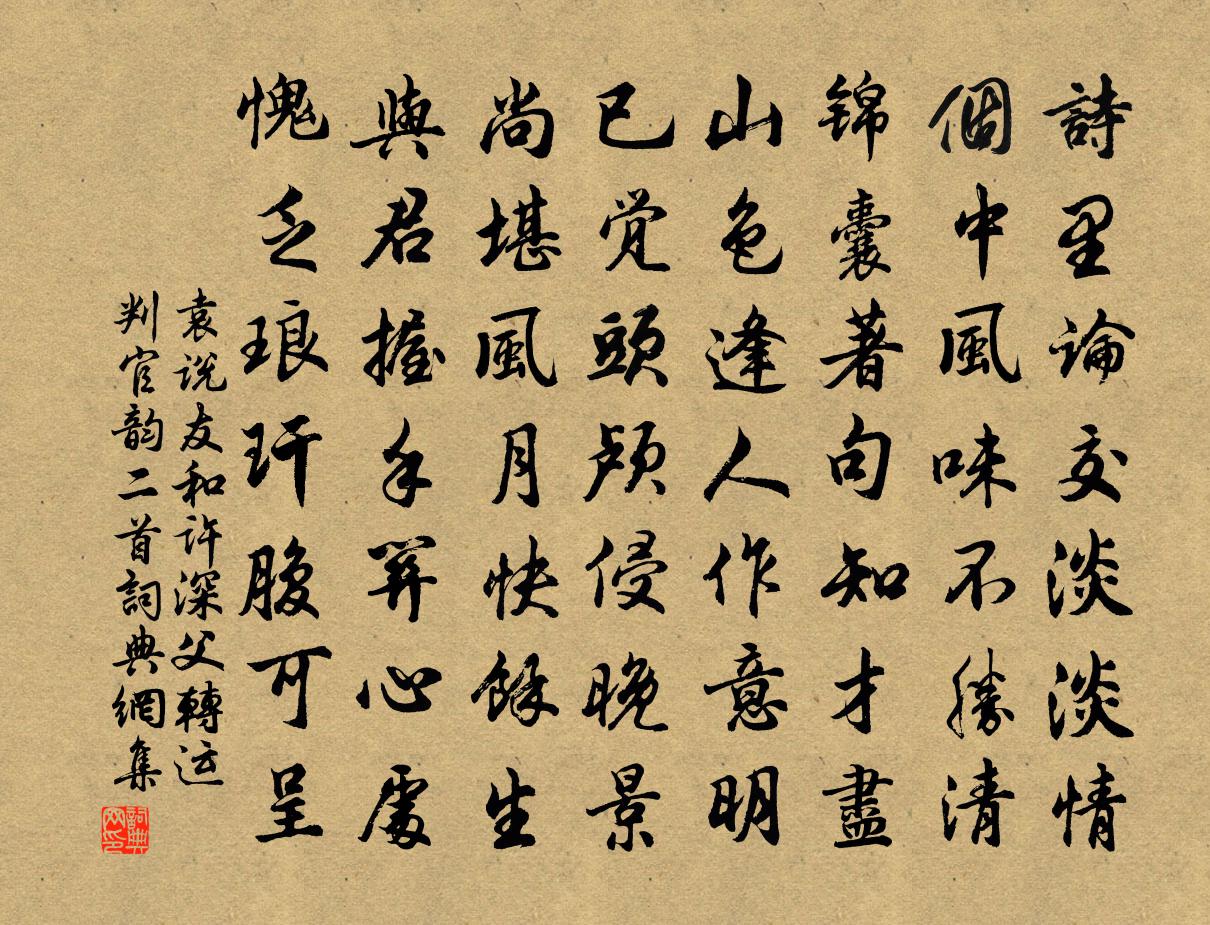 詩里論交淡淡情
個中風味不勝清
锦囊著句知才盡
山色逢人作意明
已觉頭顱侵晚景
尚堪風月快餘生
與君握手笄心處
愧乏琅玕腹可呈
袁说友和许深父轉运
判官韵二首詞典網集
詞典网印